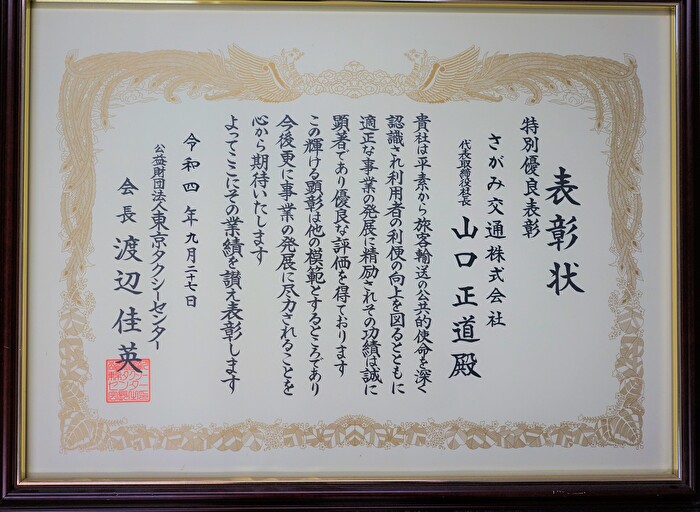 表彰状
特別優良表彰
さがみ交通株式会社
代表取締役社長 山口正道殿
貴社は平素から旅客輸送の公共的使命を深く
認識され利用者の利便の向上を図るとともに
適正な事業の発展に精励されその功績は誠に
顕著であり優良な評価を得ております
この輝ける顕彰は他の模範とするところであり
今後更に事業の発展に尽力されることを
心から期待いたします
よってここにその業績を讃え表彰します
令和四年九月二十七日
公益財団法人東京タクシーセンター
会長 渡辺佳英